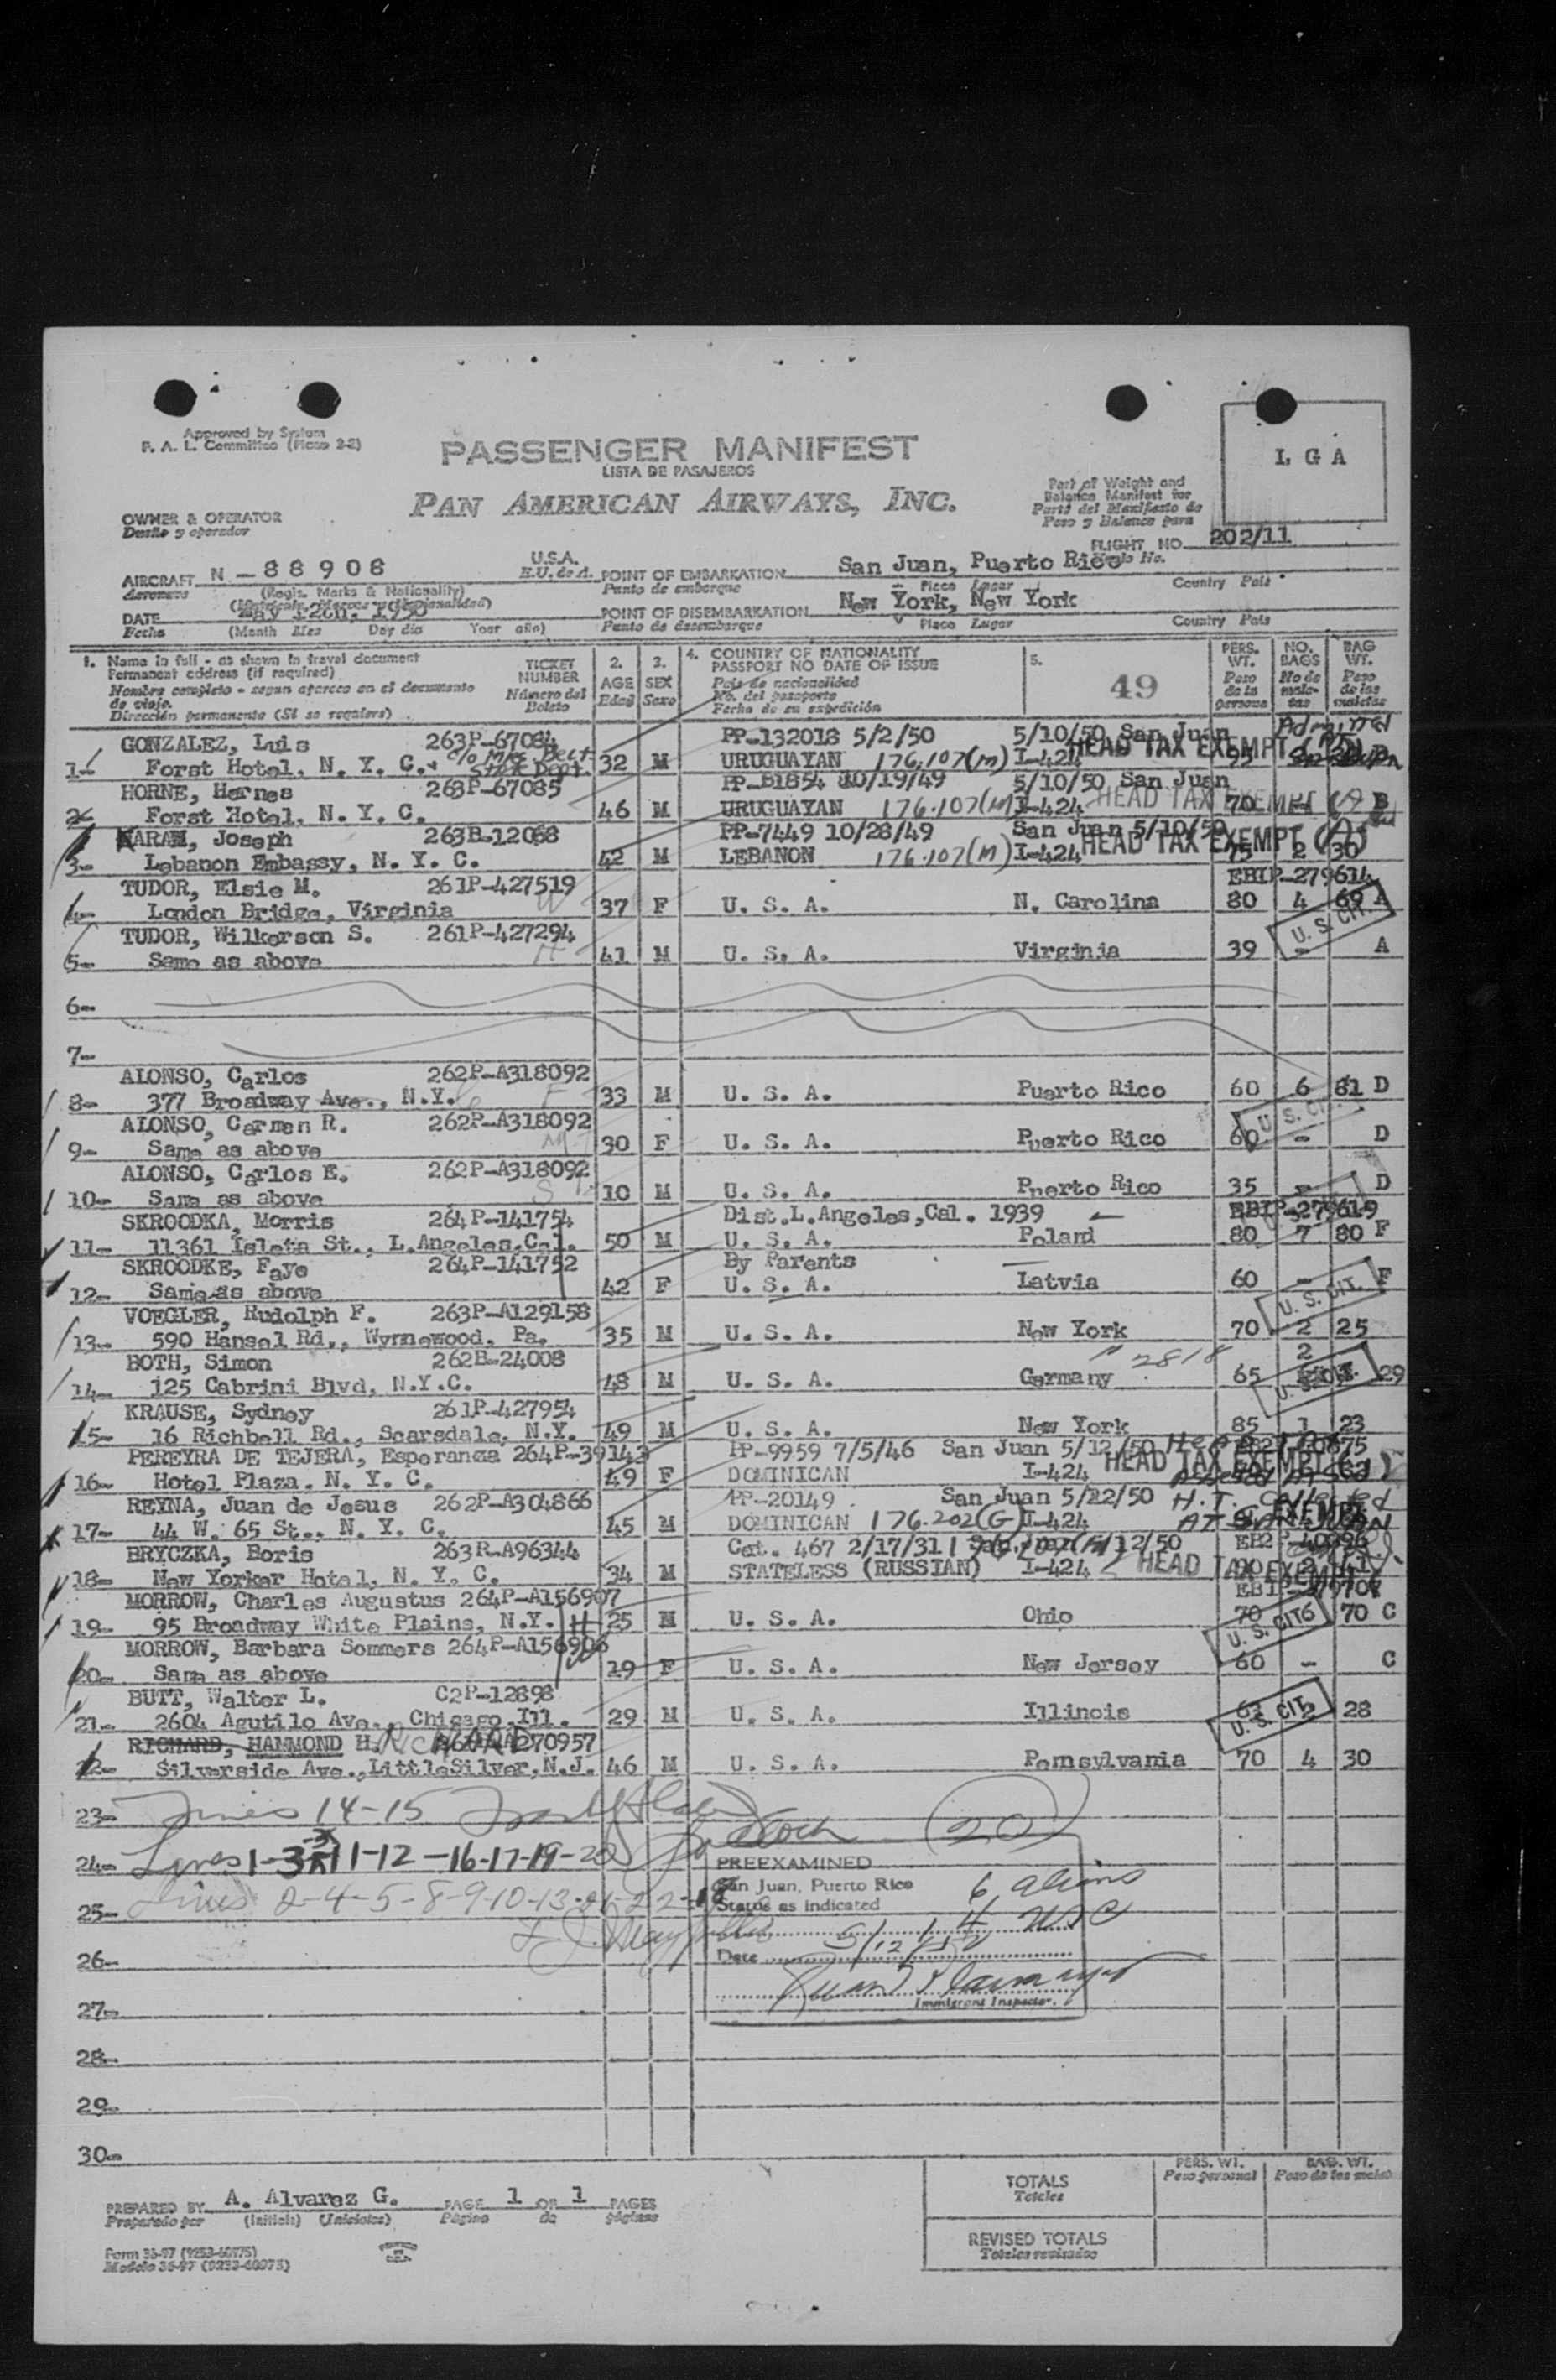 Approved by System
P. A. L. Committee (Form 3-2)
PASSENGER MANIFEST
LISTA DE PASAJEROS
PAN AMERICAN AIRWAYS, INC.
L G A
Part of Weight and
Balance Manifest for
Parte del Manifiesto de
Peso y Balance para
OWNER & OPERATOR
Dueño y operador
FLIGHT NO. 202/11
AIRCRAFT N - 88908
U.S.A.
E.U. de A.
Aeronave
(Regis. Marks & Nationality)
POINT OF EMBARKATION San Juan, Puerto Rico
Punto de embarque
Place Lugar
Country País
DATE May 12th, 1950
Fecha (Month Mes Day día Year año)
POINT OF DISEMBARKATION New York, New York
Punto de desembarque
Place Lugar
Country País
1. Name in full - as shown in travel document
Permanent address (if required)
Nombre completo - segun aparece en el documento
de viaje.
Dirección permanente (Si se requiere)
TICKET
NUMBER
Número del
Boleto
2.
AGE
Edad
3.
SEX
Sexo
4. COUNTRY OF NATIONALITY
PASSPORT NO DATE OF ISSUE
País de nacionalidad
No. del pasaporte
Fecha de su expedición
5.
49
PERS.
WT.
Peso
de la
persona
NO.
BAGS
No de
male-
tas
BAG
WT.
Peso
de las
maletas
GONZALEZ, Luis 263P-67084 PP-132018 5/2/50 5/10/50 San Juan Admitted
1- Forst Hotel, N. Y. C. 32 M URUGUAYAN 176.107(M) I-424 HEAD TAX EXEMPT
HORNE, Hernes 263P-67085 PP-B1854 10/19/49 5/10/50 San Juan
2- Forst Hotel, N. Y. C. 46 M URUGUAYAN 176.107(M) I-424 HEAD TAX EXEMPT 70 - B
KARAM, Joseph 263B-12068 PP-7449 10/28/49 San Juan 5/10/50
3- Lebanon Embassy, N. Y. C. 42 M LEBANON 176.107(M) I-424 HEAD TAX EXEMPT 75 2 30
TUDOR, Elsie M. 261P-427519 EBIP-279614
4- London Bridge, Virginia W 37 F U. S. A. N. Carolina 80 4 69 A
U. S. CIT.
TUDOR, Wilkerson S. 261P-427294
5- Same as above H 41 M U. S. A. Virginia 39 - A
6-
7-
ALONSO, Carlos 262P-A318092
8- 377 Broadway Ave., N.Y. F 33 M U. S. A. Puerto Rico 60 6 81 D
U. S. CIT.
ALONSO, Carmen R. 262P-A318092
9- Same as above M 30 F U. S. A. Puerto Rico 60 - D
ALONSO, Carlos E. 262P-A318092
10- Same as above S 10 M U. S. A. Puerto Rico 35 - D
SKROODKA, Morris 264P-141754 Dist.L.Angeles,Cal. 1939 EBIP-279619
11- 11361 Isleta St., L.Angeles,Cal. 50 M U. S. A. Poland 80 7 80 F
SKROODKE, Faye 264P-141752 By Parents
12- Same as above 42 F U. S. A. Latvia 60 - F
U. S. CIT.
VOEGLER, Rudolph F. 263P-A129158
13- 590 Hansel Rd., Wynnewood, Pa. 35 M U. S. A. New York 70 2 25
BOTH, Simon 262B-24008 2818 2
14- 125 Cabrini Blvd, N.Y.C. 48 M U. S. A. Germany 65 29
U. S. CIT.
KRAUSE, Sydney 261P-427954
15- 16 Richbell Rd., Scarsdale, N.Y. 49 M U. S. A. New York 85 1 23
PEREYRA DE TEJERA, Esperanza 264P-39143 PP-9959 7/5/46 San Juan 5/12/50
16- Hotel Plaza, N. Y. C. 49 F DOMINICAN I-424 HEAD TAX EXEMPT
REYNA, Juan de Jesus 262P-A304866 PP-20149 San Juan 5/12/50 H.T. Collected
17- 44 W. 65 St., N. Y. C. 45 M DOMINICAN 176.202(G) I-424 AT SAN JUAN
BRYCZKA, Boris 263R-A96344 Cat. 467 2/17/31 5/12/50 EB2P-40896
18- New Yorker Hotel, N. Y. C. 34 M STATELESS (RUSSIAN) I-424 HEAD TAX EXEMPT
MORROW, Charles Augustus 264P-A156907
19- 95 Broadway White Plains, N.Y. H 25 M U. S. A. Ohio 70 6 70 C
U. S. CIT.
MORROW, Barbara Sommers 264P-A156906
20- Same as above W 19 F U. S. A. New Jersey 60 - C
BUTT, Walter L. C2P-12898
21- 2604 Agutilo Ave., Chicago, Ill. 29 M U. S. A. Illinois 2 28
U. S. CIT.
RICHARD, HAMMOND H. RICHARD A270957
22- Silverside Ave., LittleSilver, N.J. 46 M U. S. A. Pennsylvania 70 4 30
23- Lines 14-15 (20)
24- Lines 1-3 11-12-16-17-19-20
25- Lines 2-4-5-8-9-10-13-21-22-18
PREEXAMINED
San Juan, Puerto Rico
Status as indicated
6 aliens
14 USC
Date 5/12/50
Immigrant Inspector.
26-
27-
28-
29-
30-
PERS. WT.
Peso personal
BAG. WT.
Peso de las maletas
TOTALS
Totales
REVISED TOTALS
Totales revisados
PREPARED BY A. Alvarez G. PAGE 1 OF 1 PAGES
Preparado por (Initials) (Iniciales) Página de páginas
Form 36-97 (9253-40075)
Modelo 36-97 (9253-40075)